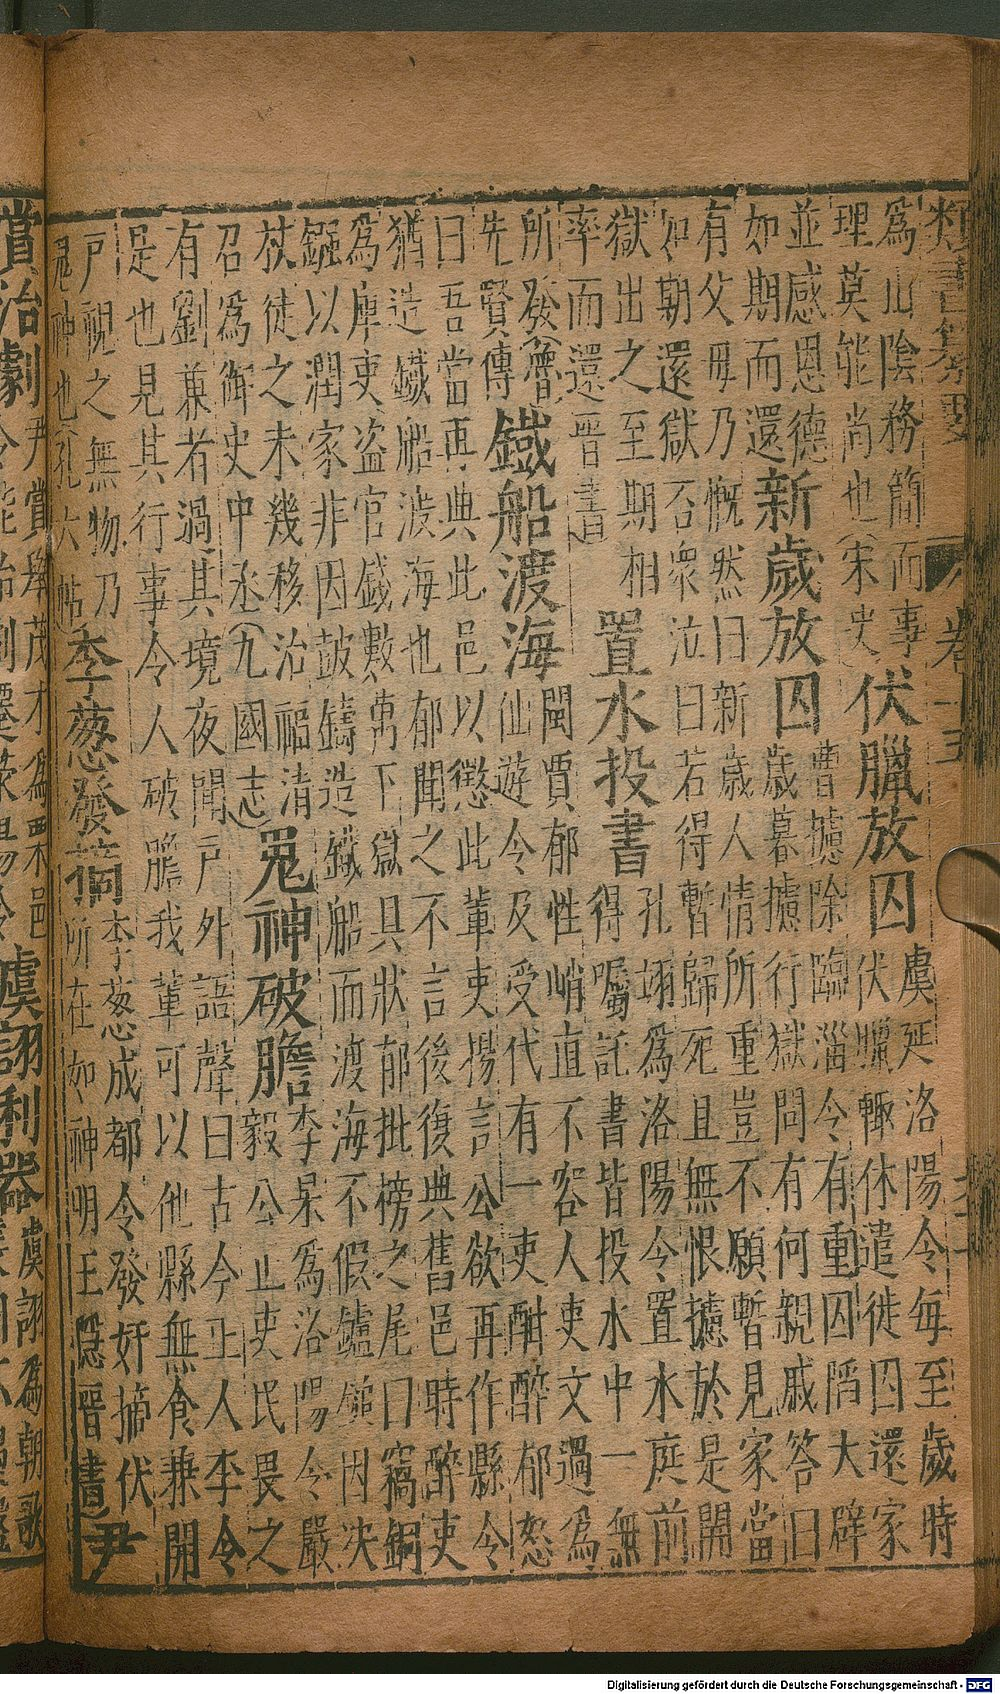 類書纂要 卷十五
為山陰務簡而事
理莫能尚也(宋史) 伏臘放囚 虞延洛陽令每至歲時
伏臘輙休遣徒囚還家
並感恩德
如期而還 新歲放囚 曹攄除臨淄令有重囚陷大辟
歲暮攄行獄問有何親戚答曰
有父母乃慨然曰新歲人情所重豈不願暫見家當
如期還獄否眾泣曰若得暫歸死且無恨攄於是開
獄出之至期相
率而還晉書 置水投書 孔翊為洛陽令置水庭前
得囑託書皆投水中一無
所發(魯
先賢傳 鐵船渡海 閩賈郁性峭直不容人吏文過為
仙遊令及受代有一吏酣醉郁怒
曰吾當再典此邑以懲此輩吏揚言公欲再作縣令
猶造鐵船渡海也郁聞之不言後復典舊邑時醉吏
為庫吏盜官錢數萬下獄具狀郁批榜之尾曰竊銅
鏂以潤家非因鼓鑄造鐵船而渡海不假鑪鎚因决
杖徒之未幾移治福清
召為御史中丞(九國志) 鬼神破膽 李杲為洛陽令嚴
毅公正吏民畏之
有劉兼者過其境夜聞戶外語聲曰古今正人李令
足也見其行事令人破膽我輩可以他縣無食兼開
戶視之無物乃
鬼神也孔六帖 李葱發摘 李葱成都令發奸摘伏
所在如神明王隱晉書 尹
賞治劇 尹賞舉茂才為粟邑
令能治劇遷
虞詡利器 虞詡為朝歌
Digitalisierung gefördert durch die Deutsche Forschungsgemeinschaft - DFG